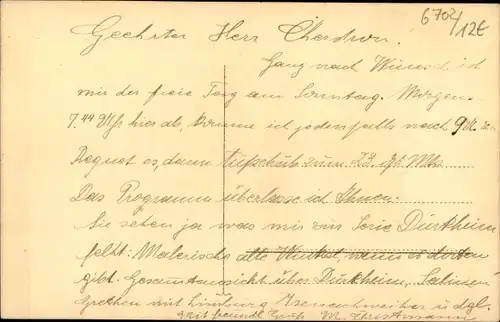 6702/
12€
Geehrter Herr
Ganz nach Wunsch ist
mir der freie Tag am Sonntag. Morgen
7.44 Uhr hier ab, komme ich jedenfalls nach 9 Uhr an
Regnet es, dann
Das Programm überlasse ich Ihnen.
Sie sehen ja was mir zur Serie Dürkheim
fehlt: Malerische alte Winkel, wenn es dorten
gibt. Gesamtansicht über Dürkheim, Salinen
Grethen mit Limburg Isenachweiher u dgl.
Mit freundl Gruß M. Christmann